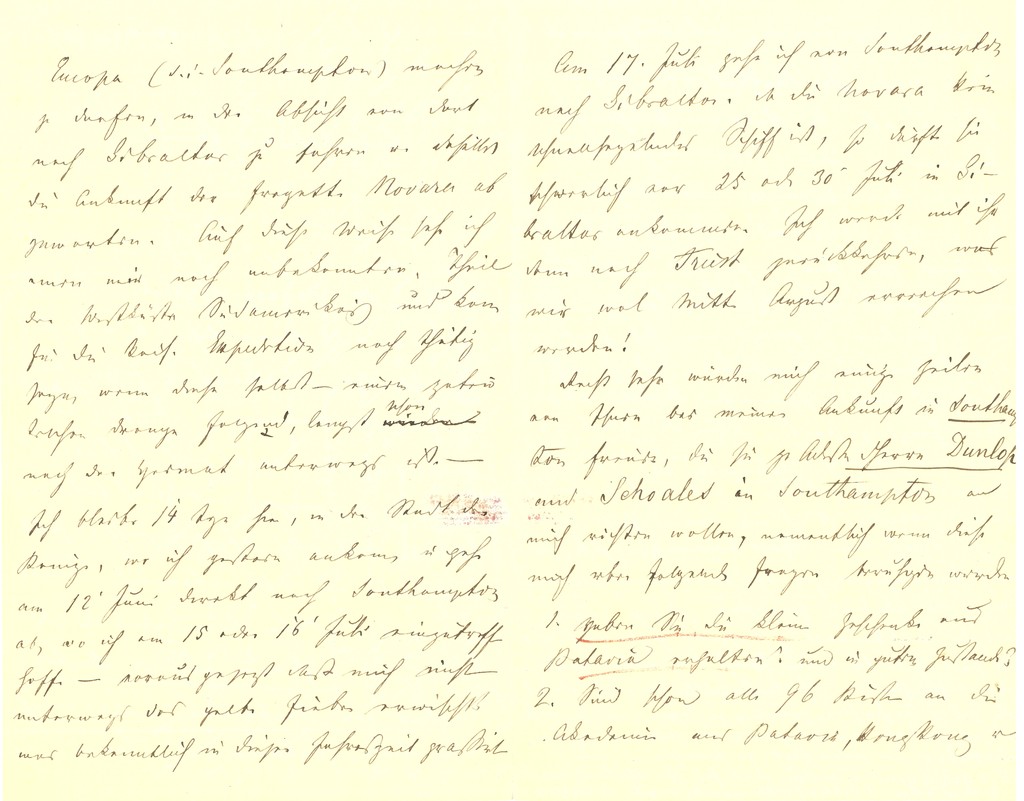 Europa (d. i. Southampton) machen
zu dürfen, in der Absicht von dort
nach Gibraltar zu fahren u. daselbst
die Ankunft der Fregatte Novara ab
zuwarten. Auf diese Weise sehe ich
einen mir noch unbekannten Theil
der Westküste Südamerikas und kann
für die Kais. Expedition noch thätig
seyn, wenn diese selbst — einem
Drange folgend, längst schon
nach der Heimat unterwegs ist. —
Ich bleibe 14 Tage hier, in der Stadt der
Könige, wo ich gestern ankam u gehe
am 12' Juni direkt nach Southampton
ab, wo ich am 15 oder 16' Juli einzutreffen
hoffe — vorausgesetzt daß mich nicht
unterwegs das gelbe Fieber erwischt
was bekanntlich in dieser Jahreszeit grassirt
Am 17. Juli gehe ich von Southampton
nach Gibraltar. Da die Novara kein
schnellsegelndes Schiff ist, so dürfte sie
schwerlich vor 25 oder 30' Juli in Gi-
braltar ankommen. Ich werde mit ihr
dann nach Triest zurückkehren, was
wir wol Mitte August erreichen
werden!
Recht sehr würden mich einige Zeilen
von Ihnen bei meiner Ankunft in Southamp
ton freuen, die Sie per Adresse Herrn Dunlop
and Schoales in Southampton an
mich richten wollen, namentlich wenn diese
mich über folgende Fragen beruhigen werden
1. Haben Sie die kleinen Geschenke aus
Batavia erhalten? und in gutem Zustande?
2. Sind schon alle 96 Kisten an die
Akademie aus Batavia, Hongkong u